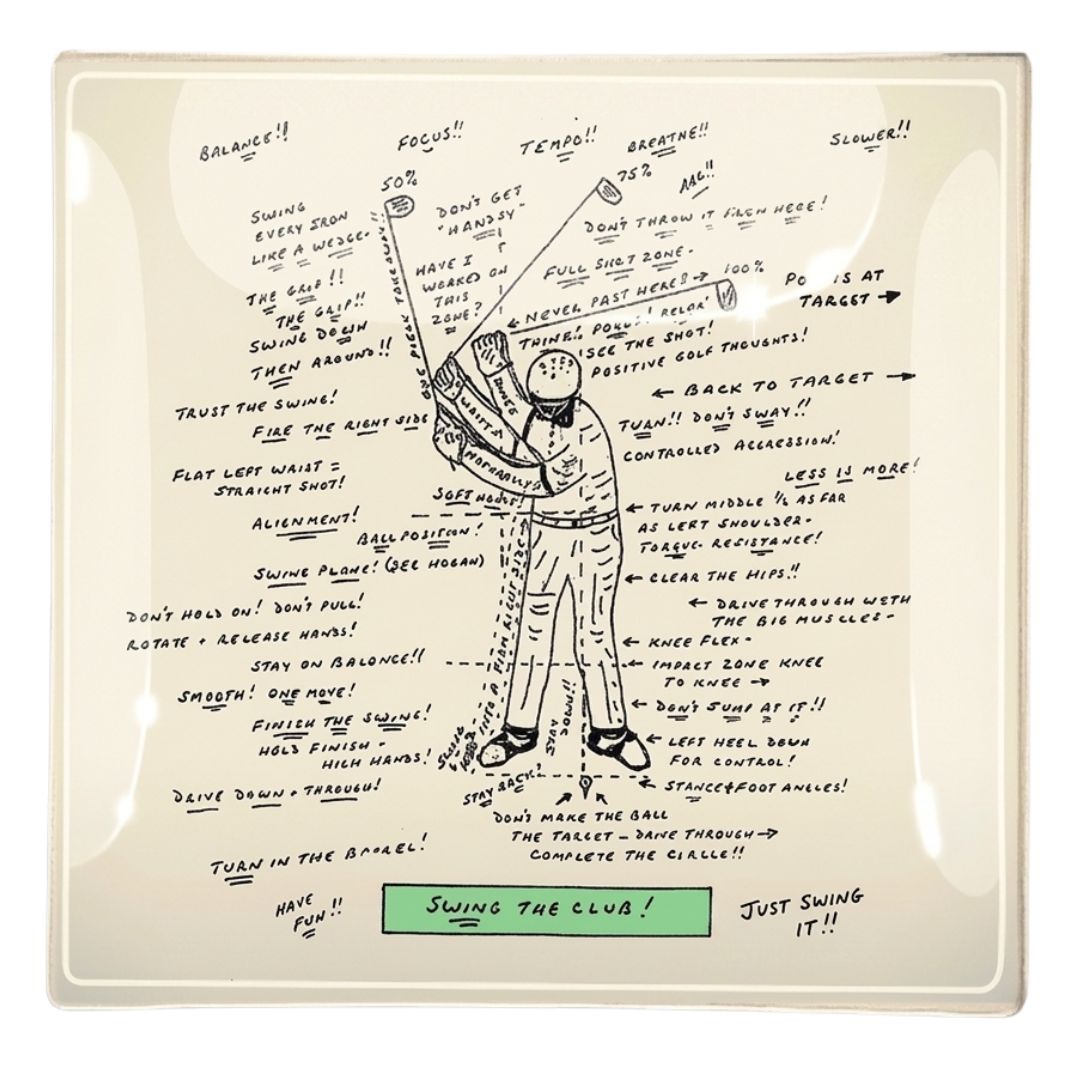 BALANCE!!
FOCUS!!
TEMPO!!
BREATHE!!
SLOWER!!
50%
75%
AAG!!
SWING
EVERY IRON
LIKE A WEDGE-
DON'T GET
"HANDSY"
DON'T THROW IT FROM HERE!
THE GRIP!!
THE GRIP!!
SWING DOWN
THEN AROUND!!
ONE PIECE TAKEAWAY!!
HAVE I
WORKED ON
THIS
ZONE?
FULL SHOT ZONE-
← NEVER PAST HERE! →
100%
AT
TARGET →
THINK! FOCUS! RELAX!
SEE THE SHOT!
POSITIVE GOLF THOUGHTS!
← BACK TO TARGET →
TRUST THE SWING!
FIRE THE RIGHT SIDE
TURN!! DON'T SWAY!!
CONTROLLED AGGRESSION!
HINGE
WRISTS
NORMALLY
FLAT LEFT WRIST =
STRAIGHT SHOT!
LESS IS MORE!
SOFT HANDS!
← TURN MIDDLE 1/2 AS FAR
AS LEFT SHOULDER-
TORQUE- RESISTANCE!
ALIGNMENT!
BALL POSITION!
SWING PLANE! (SEE HOGAN)
← CLEAR THE HIPS!!
DON'T HOLD ON! DON'T PULL!
ROTATE + RELEASE HANDS!
← DRIVE THROUGH WITH
THE BIG MUSCLES-
← KNEE FLEX-
STAY ON BALANCE!!
← IMPACT ZONE KNEE
TO KNEE →
SMOOTH! ONE MOVE!
← DON'T JUMP AT IT!!
FINISH THE SWING!
HOLD FINISH -
HIGH HANDS!
INTO A FIRM RIGHT SIDE
STAY
DOWN!!
← LEFT HEEL DOWN
FOR CONTROL!
DRIVE DOWN + THROUGH!
STAY BACK!
← STANCE + FOOT ANGLES!
DON'T MAKE THE BALL
THE TARGET - DRIVE THROUGH →
COMPLETE THE CIRCLE!!
TURN IN THE BARREL!
HAVE
FUN!!
SWING THE CLUB!
JUST SWING
IT!!